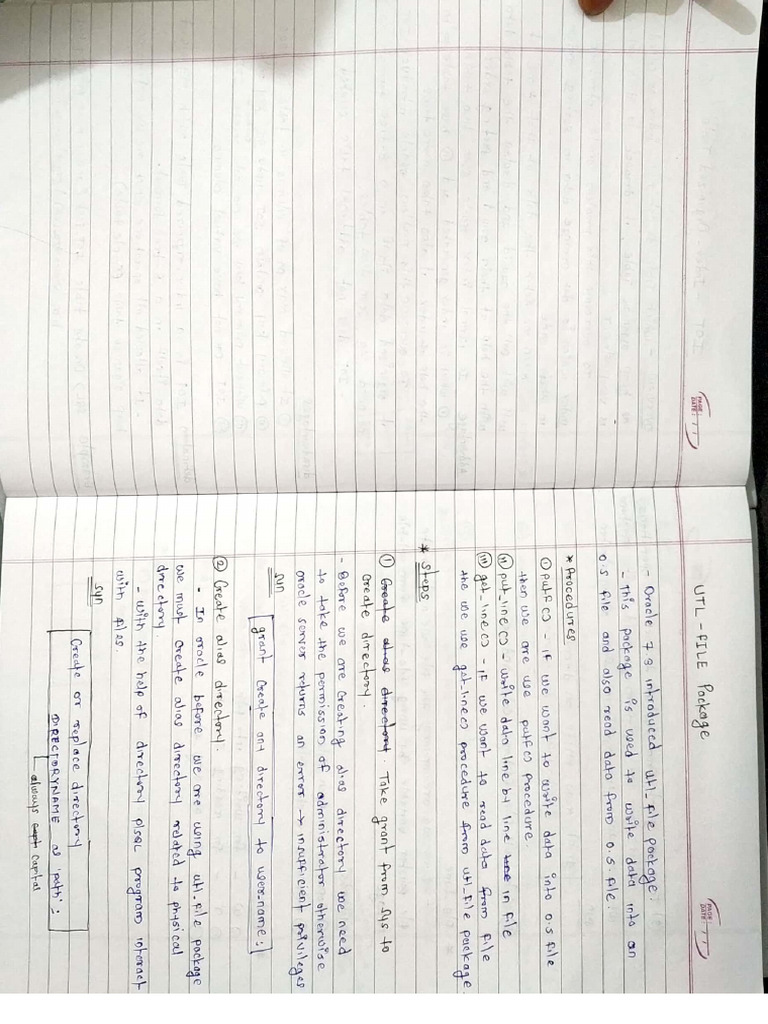 PAGE:
DATE: / /
PAGE:
DATE: / /
UTL-FILE Package
- Oracle 7.3 introduced utl_file package.
- This package is used to write data into an
O.S file and also read data from O.S file.
* Procedures
① putf() - if we want to write data into O.S file
then we are use putf() procedure
② put-line() - write data line by line in file
③ get-line() - if we want to read data from file
the we use get-line() procedure from utl_file package.
* Steps
① Create alias directory. Take grant from sys to
create directory.
- Before we are creating alias directory we need
to take the permission of administrator otherwise
oracle server returns an error → insufficient privileges
syn
grant create any directory to user-name;
② Create alias directory.
- In oracle before we are using utl_file package
we must create alias directory related to physical
directory
- with the help of directory plsql program interact
with files.
syn
Create or replace directory
DIRECTORYNAME as 'path';
always Capital